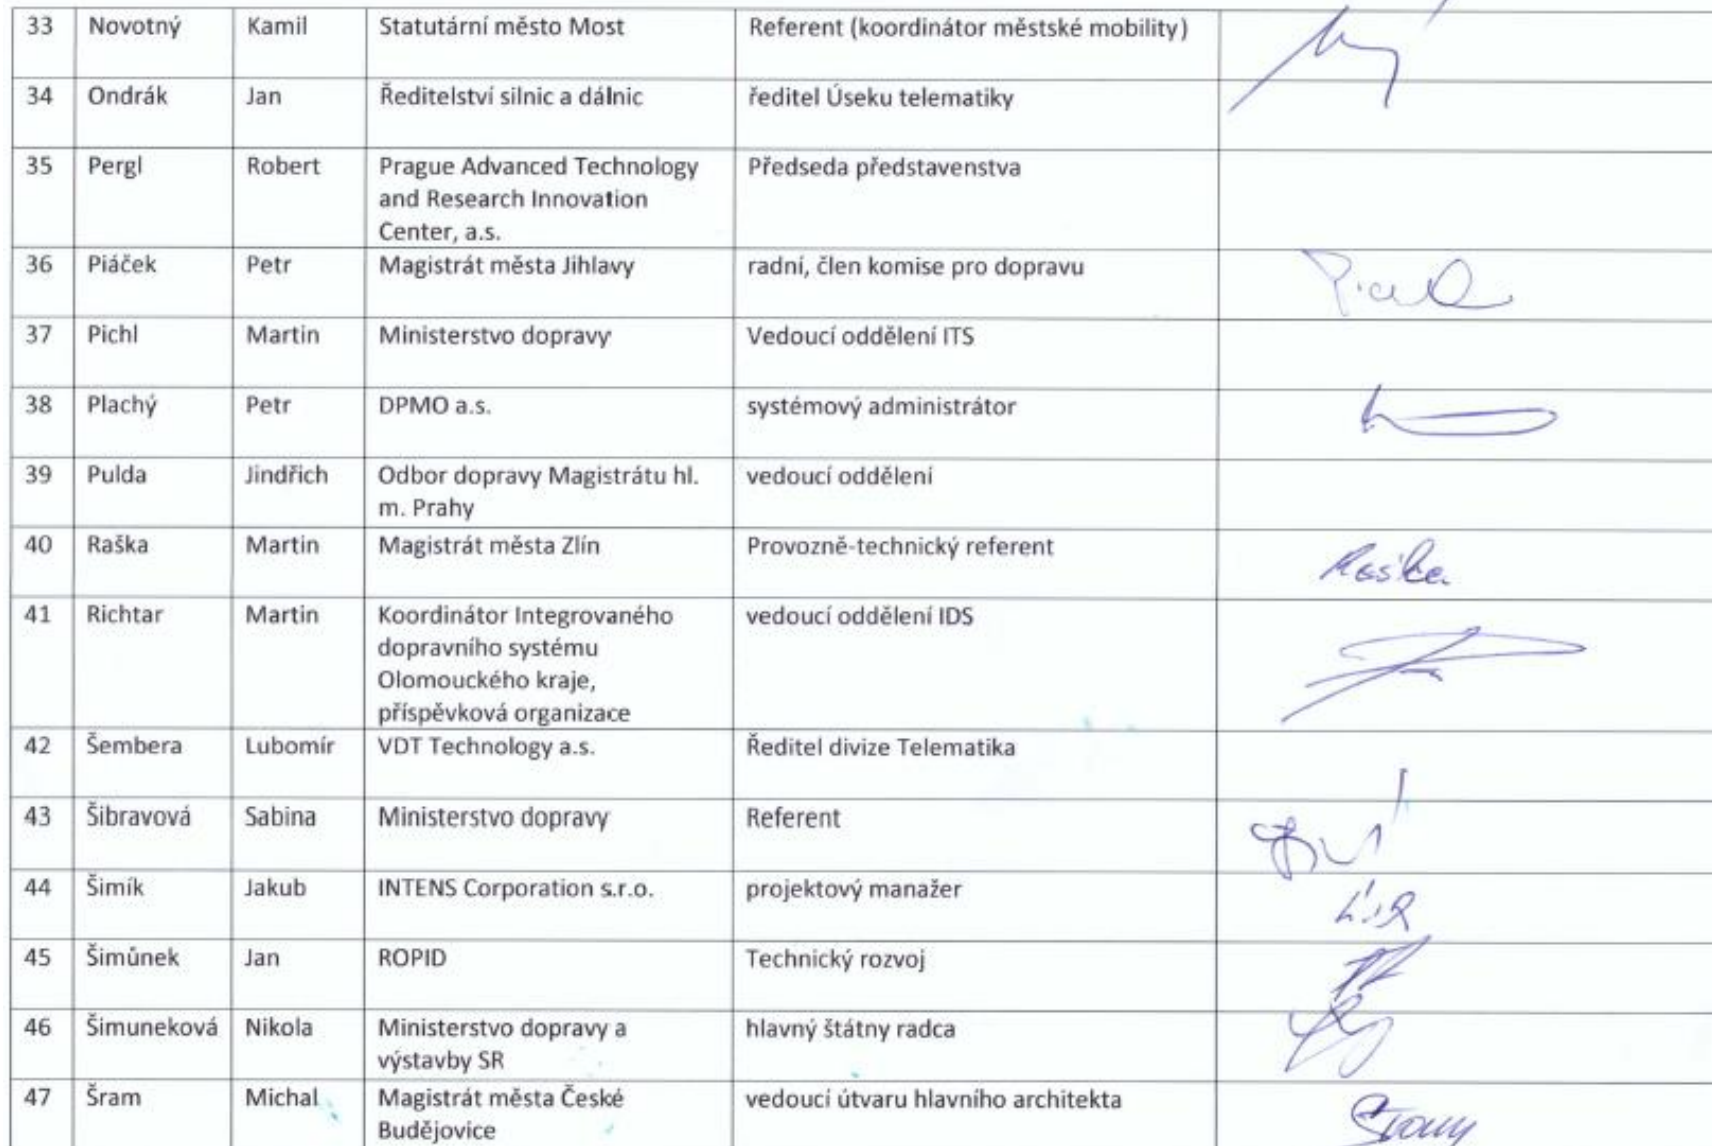 33 Novotný Kamil Statutární město Most Referent (koordinátor městské mobility)
34 Ondrák Jan Ředitelství silnic a dálnic ředitel Úseku telematiky
35 Pergl Robert Prague Advanced Technology Předseda představenstva
and Research Innovation
Center, a.s.
36 Piáček Petr Magistrát města Jihlavy radní, člen komise pro dopravu
37 Pichl Martin Ministerstvo dopravy Vedoucí oddělení ITS
38 Plachý Petr DPMO a.s. systémový administrátor
39 Pulda Jindřich Odbor dopravy Magistrátu hl. vedoucí oddělení
m. Prahy
40 Raška Martin Magistrát města Zlín Provozně-technický referent Raška
41 Richtar Martin Koordinátor Integrovaného vedoucí oddělení IDS
dopravního systému
Olomouckého kraje,
příspěvková organizace
42 Šembera Lubomír VDT Technology a.s. Ředitel divize Telematika
43 Šibravová Sabina Ministerstvo dopravy Referent
44 Šimík Jakub INTENS Corporation s.r.o. projektový manažer
45 Šimůnek Jan ROPID Technický rozvoj
46 Šimuneková Nikola Ministerstvo dopravy a hlavný štátny radca
výstavby SR
47 Šram Michal Magistrát města České vedoucí útvaru hlavního architekta
Budějovice